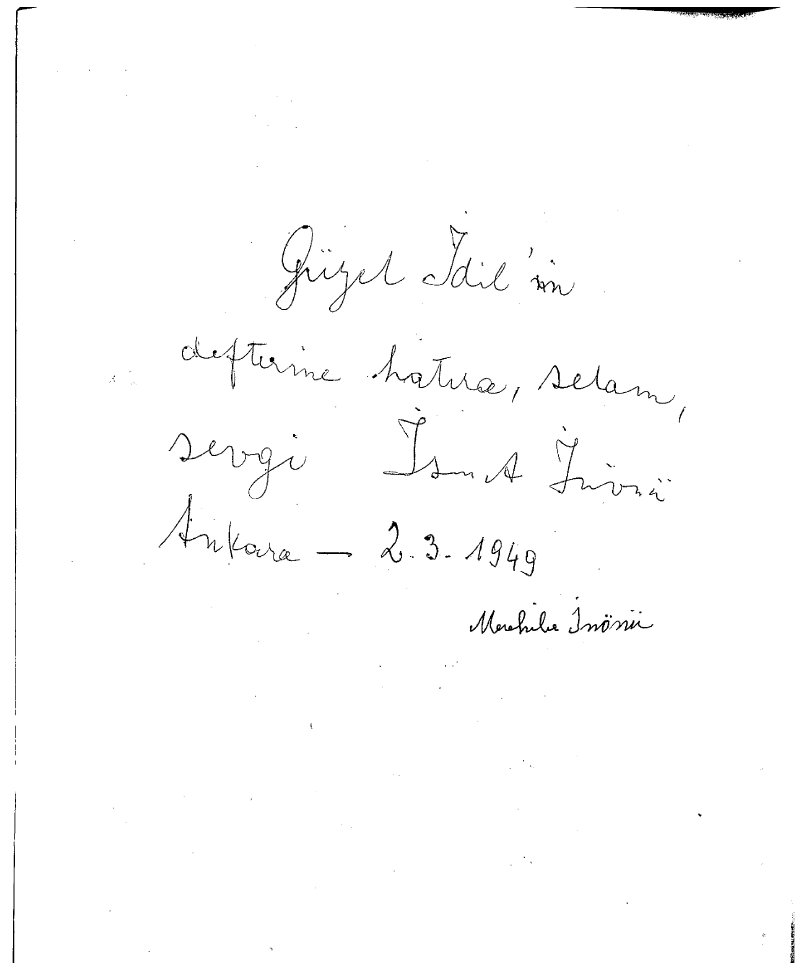 Güzel İdil'in
defterine hatıra, selam,
sevgi İsmet İnönü
Ankara — 2.3.1949
Mevhibe İnönü